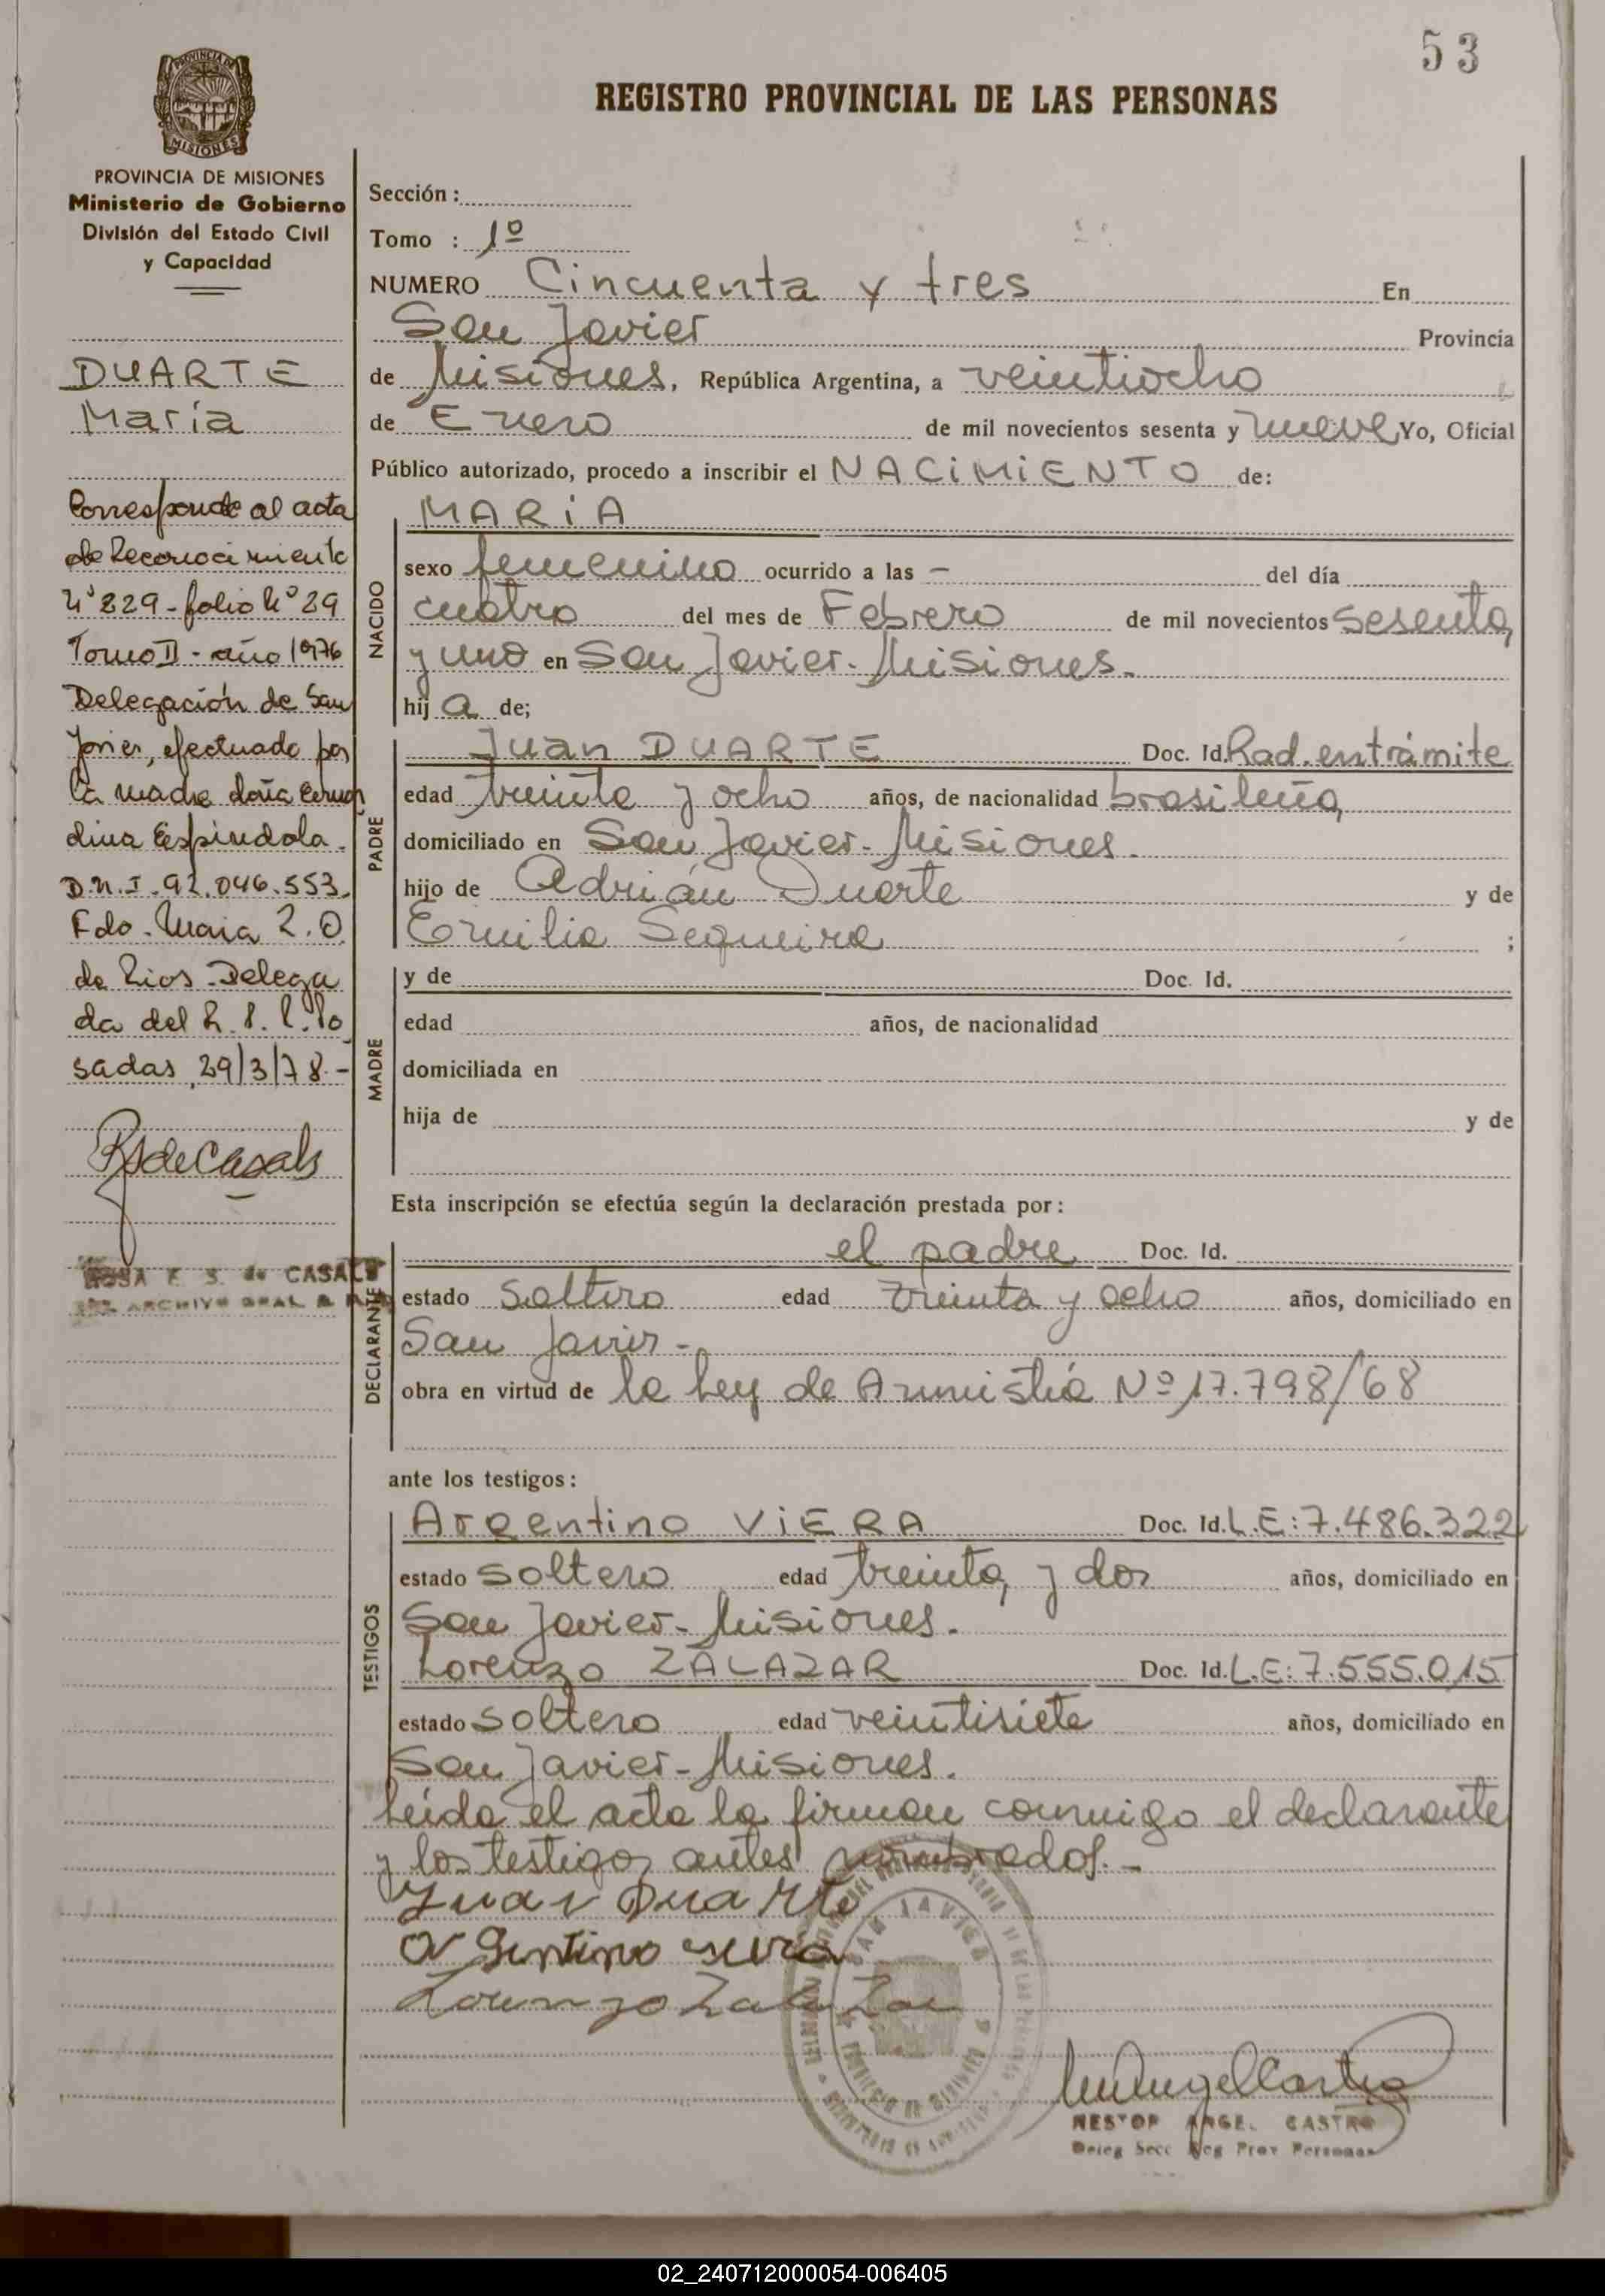 53
REGISTRO PROVINCIAL DE LAS PERSONAS
PROVINCIA DE
MISIONES
PROVINCIA DE MISIONES
Ministerio de Gobierno
División del Estado Civil
y Capacidad
DUARTE
María
Corresponde al acta
de Reconocimiento
Nº 229 - folio Nº 29
Tomo II - año 1976
Delegación de San
Javier, efectuado por
la madre doña
dina Espíndola.
D.N.I. 92.046.553.
Fdo. Maria R. O.
de Rios - Delega
da del R. P. P. Po
sadas, 29/3/78.-
RSdeCasals
ROSA F. S. de CASALS
ARCHIVO GRAL
Sección :
Tomo : 1º
NUMERO Cincuenta y tres En
San Javier Provincia
de Misiones, República Argentina, a veintiocho
de Enero de mil novecientos sesenta y nueve Yo, Oficial
Público autorizado, procedo a inscribir el NACIMIENTO de:
NACIDO
MARIA
sexo femenino ocurrido a las — del día
cuatro del mes de Febrero de mil novecientos sesenta
y uno en San Javier - Misiones.
hij a de;
PADRE
Juan DUARTE Doc. Id. Rad. en trámite
edad treinta y ocho años, de nacionalidad brasileña
domiciliado en San Javier - Misiones.
hijo de Adrián Duarte y de
Emilia Sequeira ;
MADRE
y de Doc. Id.
edad años, de nacionalidad
domiciliada en
hija de y de
Esta inscripción se efectúa según la declaración prestada por :
DECLARANTE
el padre Doc. Id.
estado Soltero edad treinta y ocho años, domiciliado en
San Javier -
obra en virtud de la Ley de Amnistía Nº 17.798/68
ante los testigos :
TESTIGOS
Argentino VIERA Doc. Id. L.E: 7.486.322
estado soltero edad treinta y dos años, domiciliado en
San Javier - Misiones.
Lorenzo ZALAZAR Doc. Id. L.E: 7.555.015
estado soltero edad veintisiete años, domiciliado en
San Javier - Misiones.
Leída el acta la firman conmigo el declarante
y los testigos antes nombrados. -
Juan Duarte
Lorenzo Zalazar
SAN JAVIER
NESTOR ANGEL CASTRO
Deleg Secc Reg Prov Personas
02_240712000054-006405